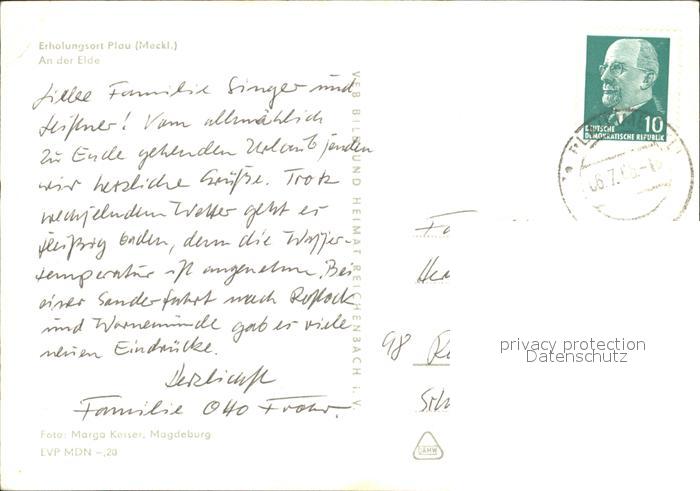 Erholungsort Plau (Meckl.)
An der Elde
Liebe Familie Singer und
Leißner! Vom allmählich
zu Ende gehenden Urlaub senden
wir herzliche Grüße. Trotz
wechselndem Wetter geht es
fleißig baden, denn die Wasser-
temperatur ist angenehm. Bei
einer Sonderfahrt nach Rostock
und Warnemünde gab es viele
neuen Eindrücke.
Herzlichst
Familie Otto
Foto: Marga Kesser, Magdeburg
EVP MDN –,20
VEB BILD UND HEIMAT REICHENBACH I. V.
10
DEUTSCHE
DEMOKRATISCHE REPUBLIK
Fa
98
privacy protection
Datenschutz